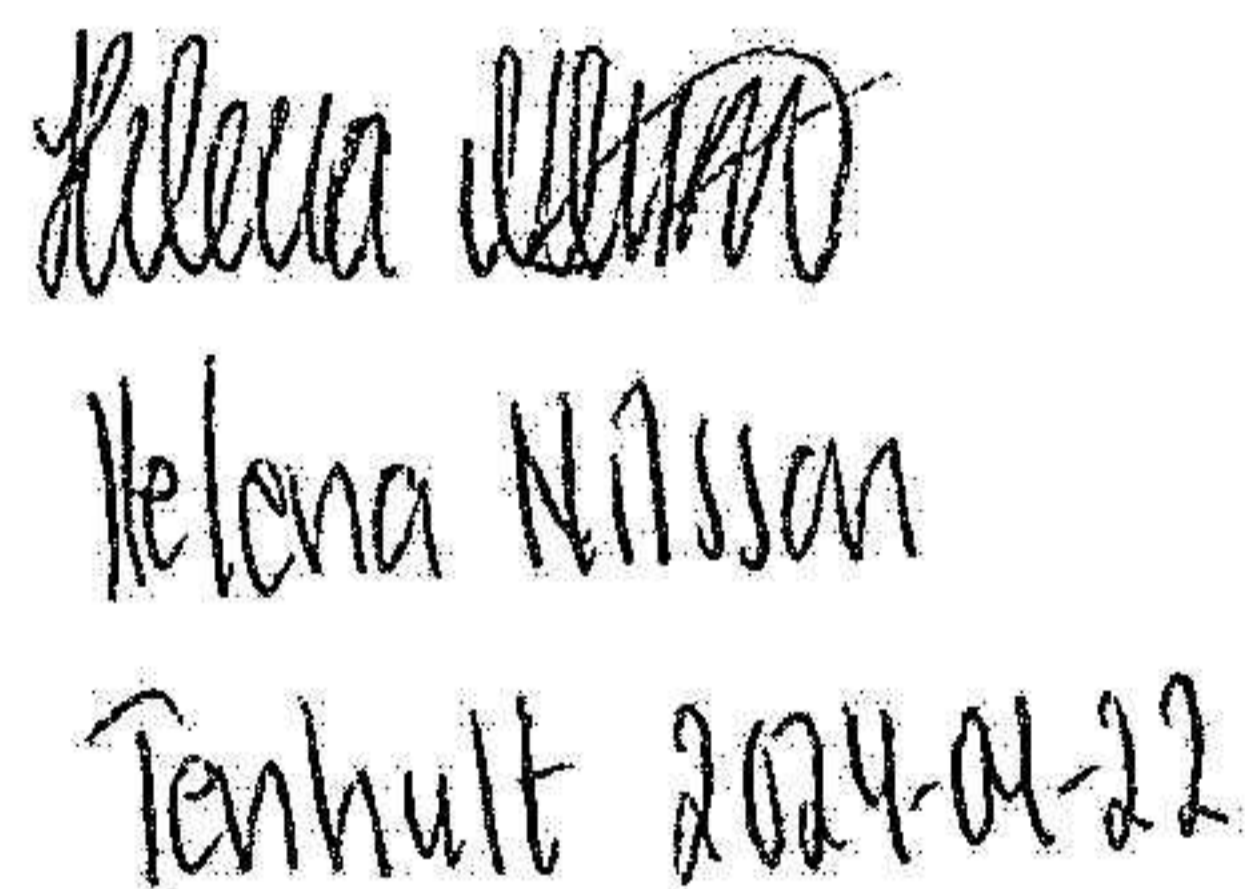 Helena
Helena Nilsson
Tenhult 2024-04-22